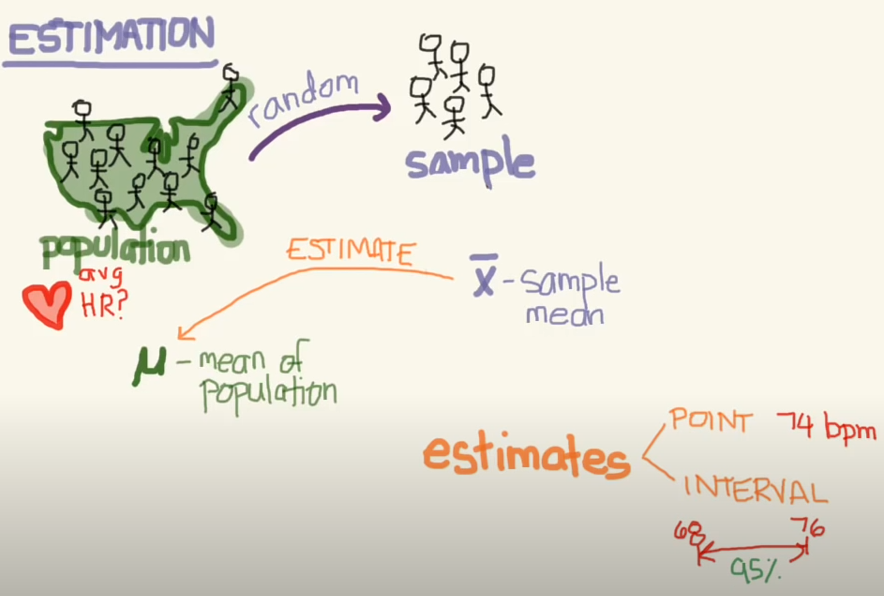 ESTIMATION
random
sample
population
avg
HR?
ESTIMATE
x̄ - sample
mean
μ - mean of
population
estimates
POINT 74 bpm
INTERVAL
68 76
95%